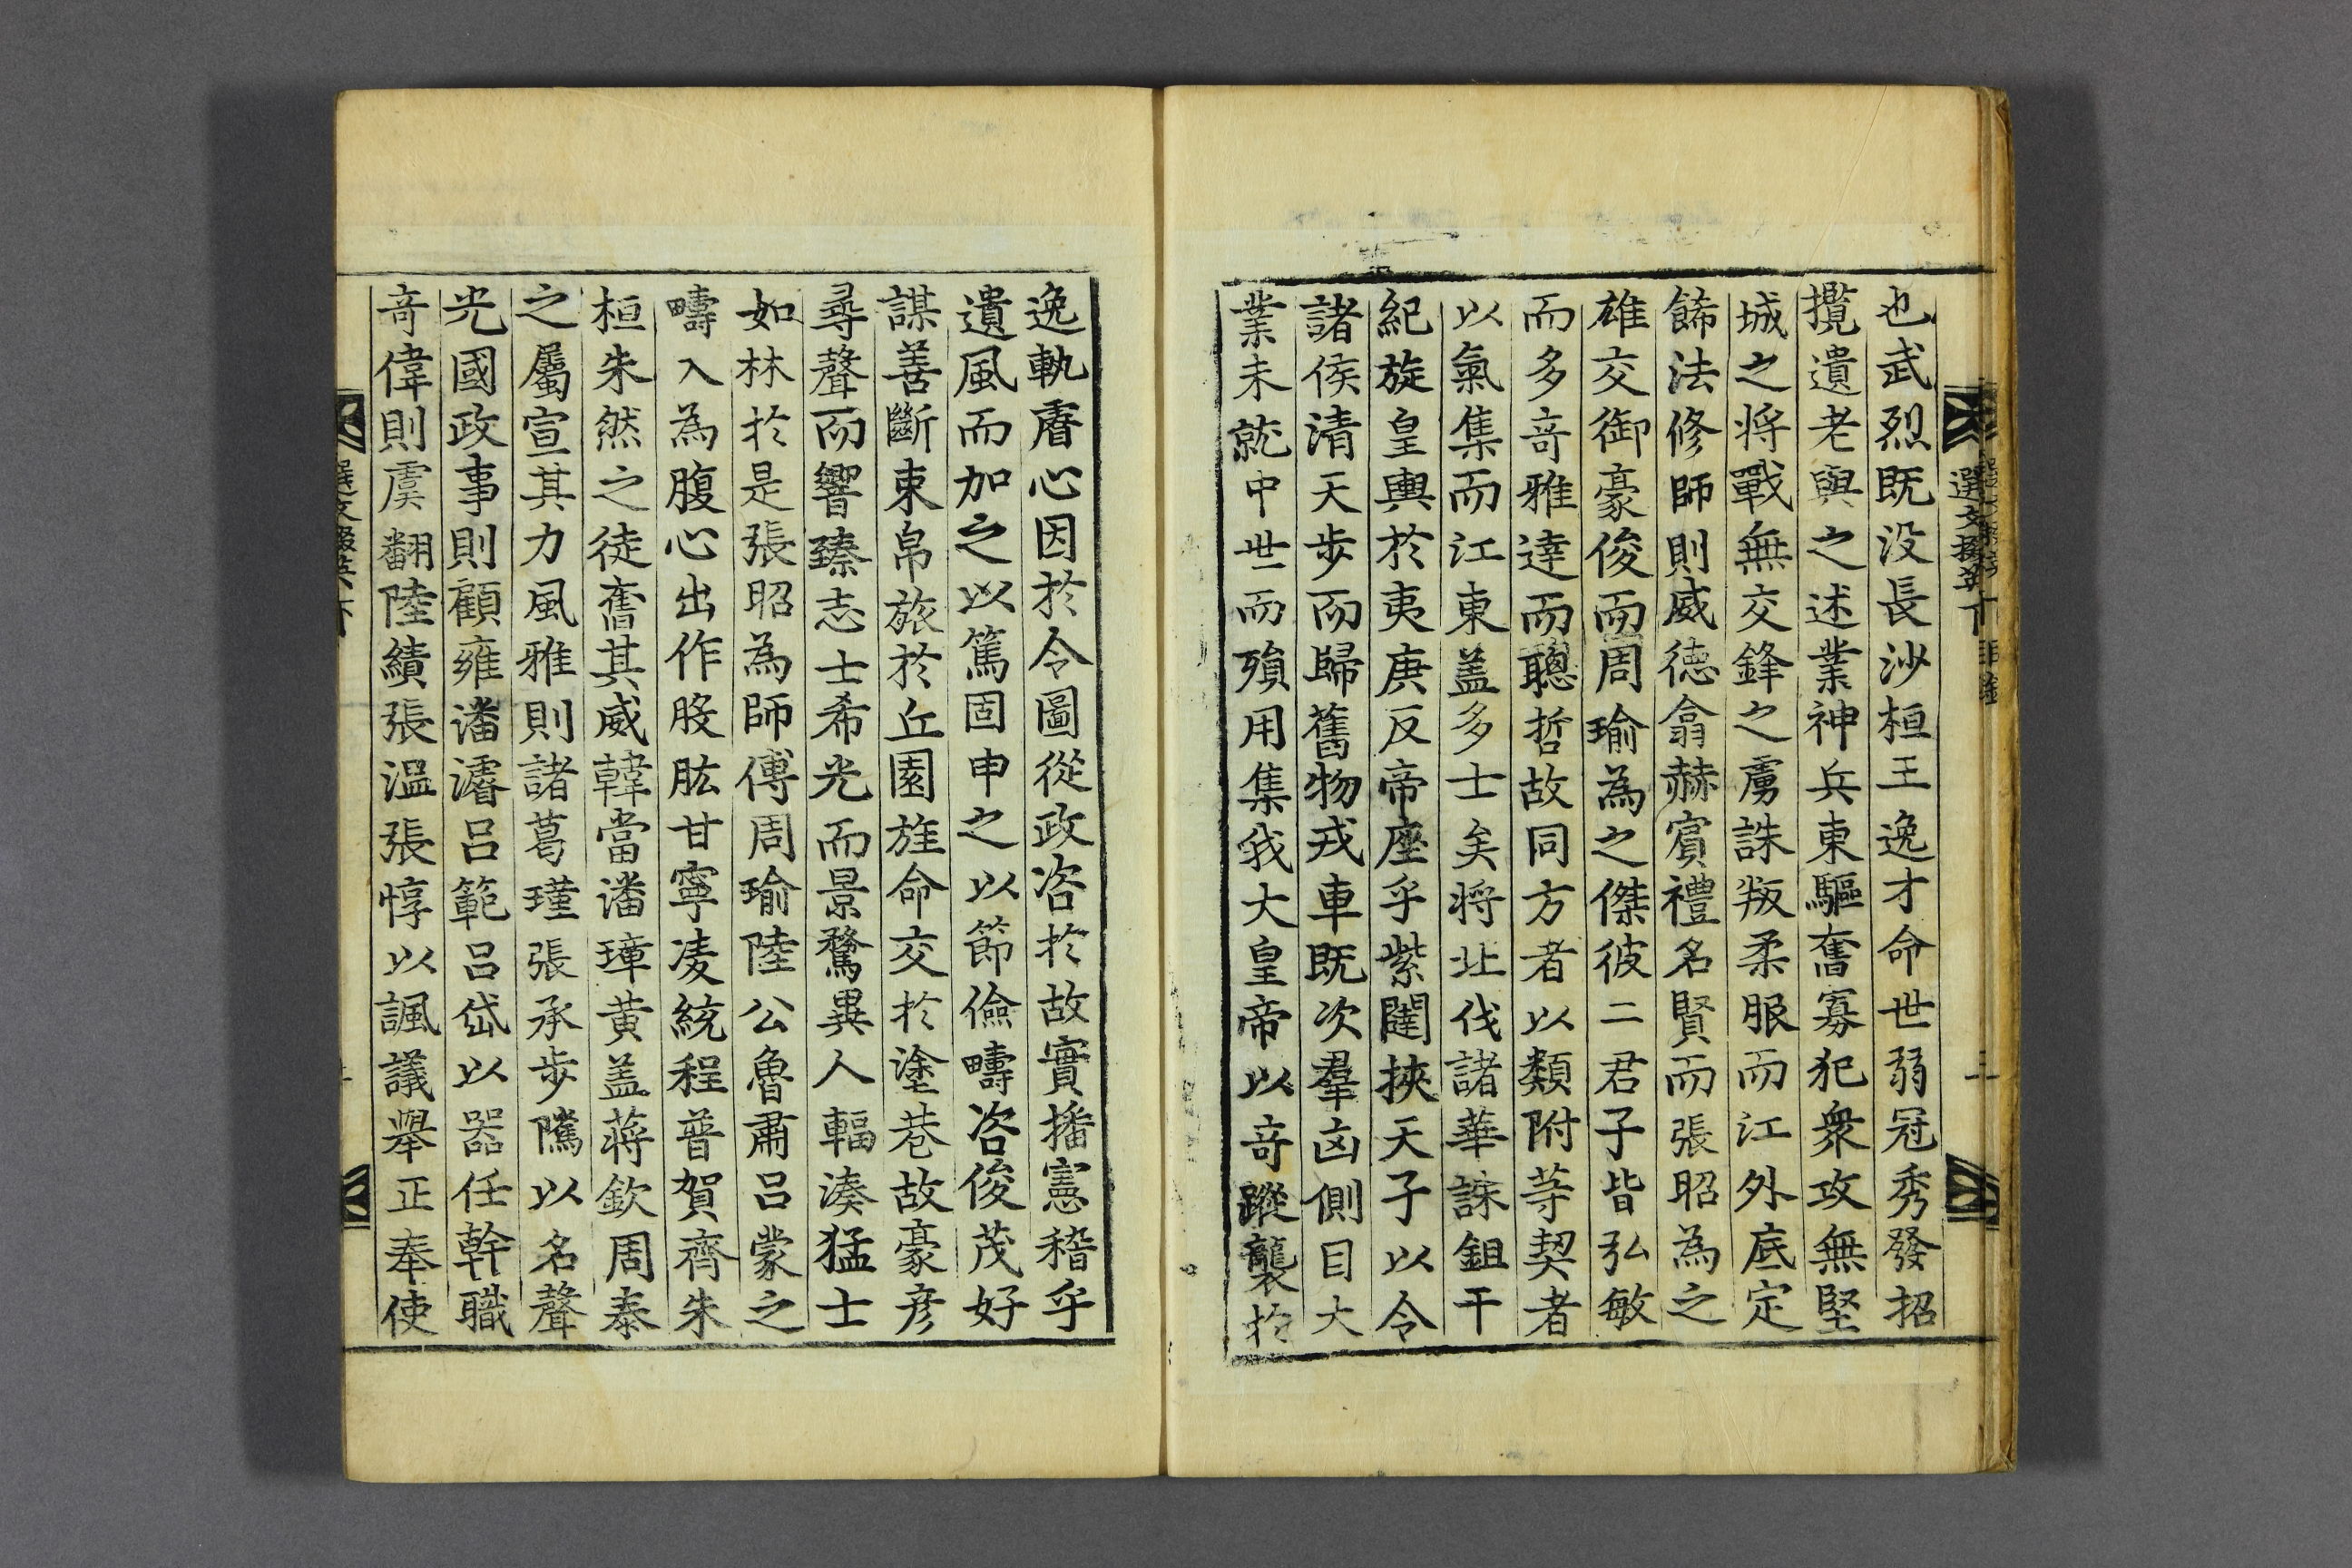 也武烈既没長沙桓王逸才命世弱冠秀發招
攬遺老與之述業神兵東驅奮寡犯衆攻無堅
城之将戰無交鋒之虜誅叛柔服而江外底定
餙法修師則威徳翕赫賔禮名賢而張昭為之
雄交御豪俊而周瑜為之傑彼二君子皆弘敏
而多竒雅達而聰哲故同方者以類附等契者
以氣集而江東盖多士矣将北伐諸華誅鉏干
紀旋皇輿於夷庚反帝座乎紫闥挾天子以令
諸侯清天歩而歸舊物戎車既次羣凶側目大
業未就中世而殞用集我大皇帝以竒蹤襲於
選文掇英下
三
逸軌睿心因於令圖從政咨於故實播憲稽乎
遺風而加之以篤固申之以節儉疇咨俊茂好
謀善斷束帛旅於丘園旌命交於塗巷故豪彦
尋聲而響臻志士希光而景騖異人輻湊猛士
如林於是張昭為師傅周瑜陸公魯肅吕蒙之
疇入為腹心出作股肱甘寧凌統程普賀齊朱
桓朱然之徒奮其威韓當潘璋黄盖蒋欽周泰
之屬宣其力風雅則諸葛瑾張承歩隲以名聲
光國政事則顧雍潘濬吕範吕岱以器任幹職
竒偉則虞翻陸績張温張惇以諷議舉正奉使